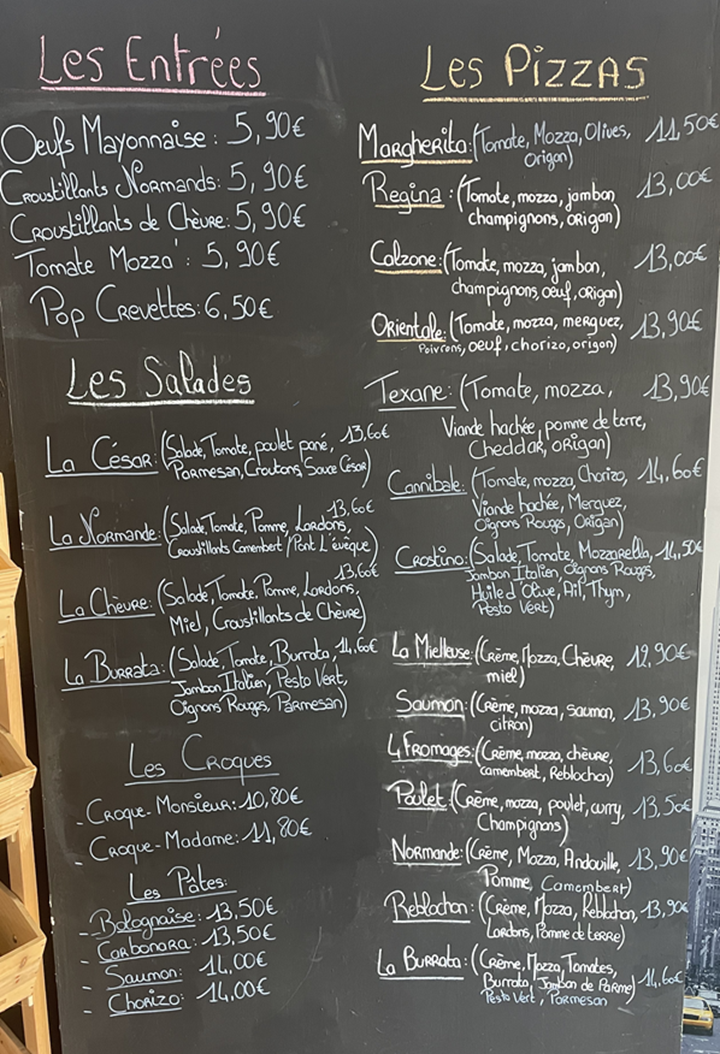 Les Entrées
Oeufs Mayonnaise : 5,90€
Croustillants Normands: 5,90€
Croustillants de Chèvre: 5,90€
Tomate Mozza : 5,90€
Pop Crevettes: 6,50€
Les Salades
La César: (Salade, Tomate, poulet pané, 13,60€
Parmesan, Croutons, Sauce César)
La Normande: (Salade, Tomate, Pomme, Lardons, 13,60€
Croustillants Camembert / Pont L'évêque)
La Chèvre: (Salade, Tomate, Pomme, Lardons, 13,60€
Miel, Croustillants de Chèvre)
La Burrata: (Salade, Tomate, Burrata, 14,60€
Jambon Italien, Pesto Vert,
Oignons Rouges, Parmesan)
Les Croques
- Croque-Monsieur: 10,80€
- Croque-Madame: 11,80€
Les Pâtes:
- Bolognaise: 13,50€
- Carbonara: 13,50€
- Saumon: 14,00€
- Chorizo: 14,00€
Les Pizzas
Margherita: (Tomate, Mozza, Olives, 11,50€
origan)
Regina : (Tomate, mozza, jambon, 13,00€
champignons, origan)
Calzone: (Tomate, mozza, jambon, 13,00€
champignons, oeuf, origan)
Orientale: (Tomate, mozza, merguez, 13,90€
Poivrons, oeuf, chorizo, origan)
Texane: (Tomate, mozza, 13,90€
Viande hachée, pomme de terre,
Cheddar, origan)
Cannibale: (Tomate, mozza, Chorizo, 14,60€
Viande hachée, Merguez,
Oignons Rouges, Origan)
Crostino: (Salade, Tomate, Mozzarella, 14,50€
Jambon Italien, Oignons Rouges,
Huile d'Olive, Ail, Thym,
Pesto Vert)
La Mielleuse: (Crème, Mozza, Chèvre, 12,90€
miel)
Saumon: (Crème, mozza, saumon, 13,90€
citron)
4 Fromages: (Crème, mozza, chèvre, 13,60€
camembert, Reblochon)
Poulet: (Crème, mozza, poulet, curry, 13,50€
Champignons)
Normande: (Crème, Mozza, Andouille, 13,90€
Pomme, Camembert)
Reblochon: (Crème, Mozza, Reblochon, 13,90€
Lardons, Pomme de terre)
La Burrata: (Crème, Mozza, Tomates, 14,60€
Burrata, Jambon de Parme)
Pesto Vert, Parmesan